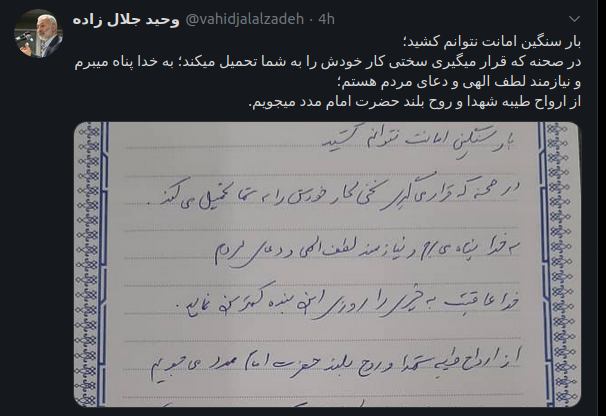 وحید جلال زاده @vahidjalalzadeh · 4h
بار سنگین امانت نتوانم کشید؛
در صحنه که قرار میگیری سختی کار خودش را به شما تحمیل میکند؛ به خدا پناه میبرم
و نیازمند لطف الهی و دعای مردم هستم؛
از ارواح طیبه شهدا و روح بلند حضرت امام مدد میجویم.
بار سنگین امانت نتوانم کشید
در صحنه که قرار می‌گیری سختی کار خودش را به شما تحمیل می‌کند.
به خدا پناه می‌برم و نیازمند لطف الهی و دعای مردم
خدا عاقبت به خیری را روزی این بنده کمترین نماید.
از ارواح طیبه شهدا و روح بلند حضرت امام مدد می‌جویم